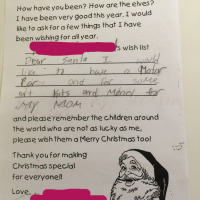 How have you been? How are the elves?
I have been very good this year. I would
like to ask for a few things that I have
been wishing for all year.
's wish list
Dear Santa I would
like to have a Motor
and for some
art kits and Money for
My MOM
and please remember the children around
the world who are not as lucky as me,
please wish them a Merry Christmas too!
Thank you for making
Christmas special
for everyone!!
Love,